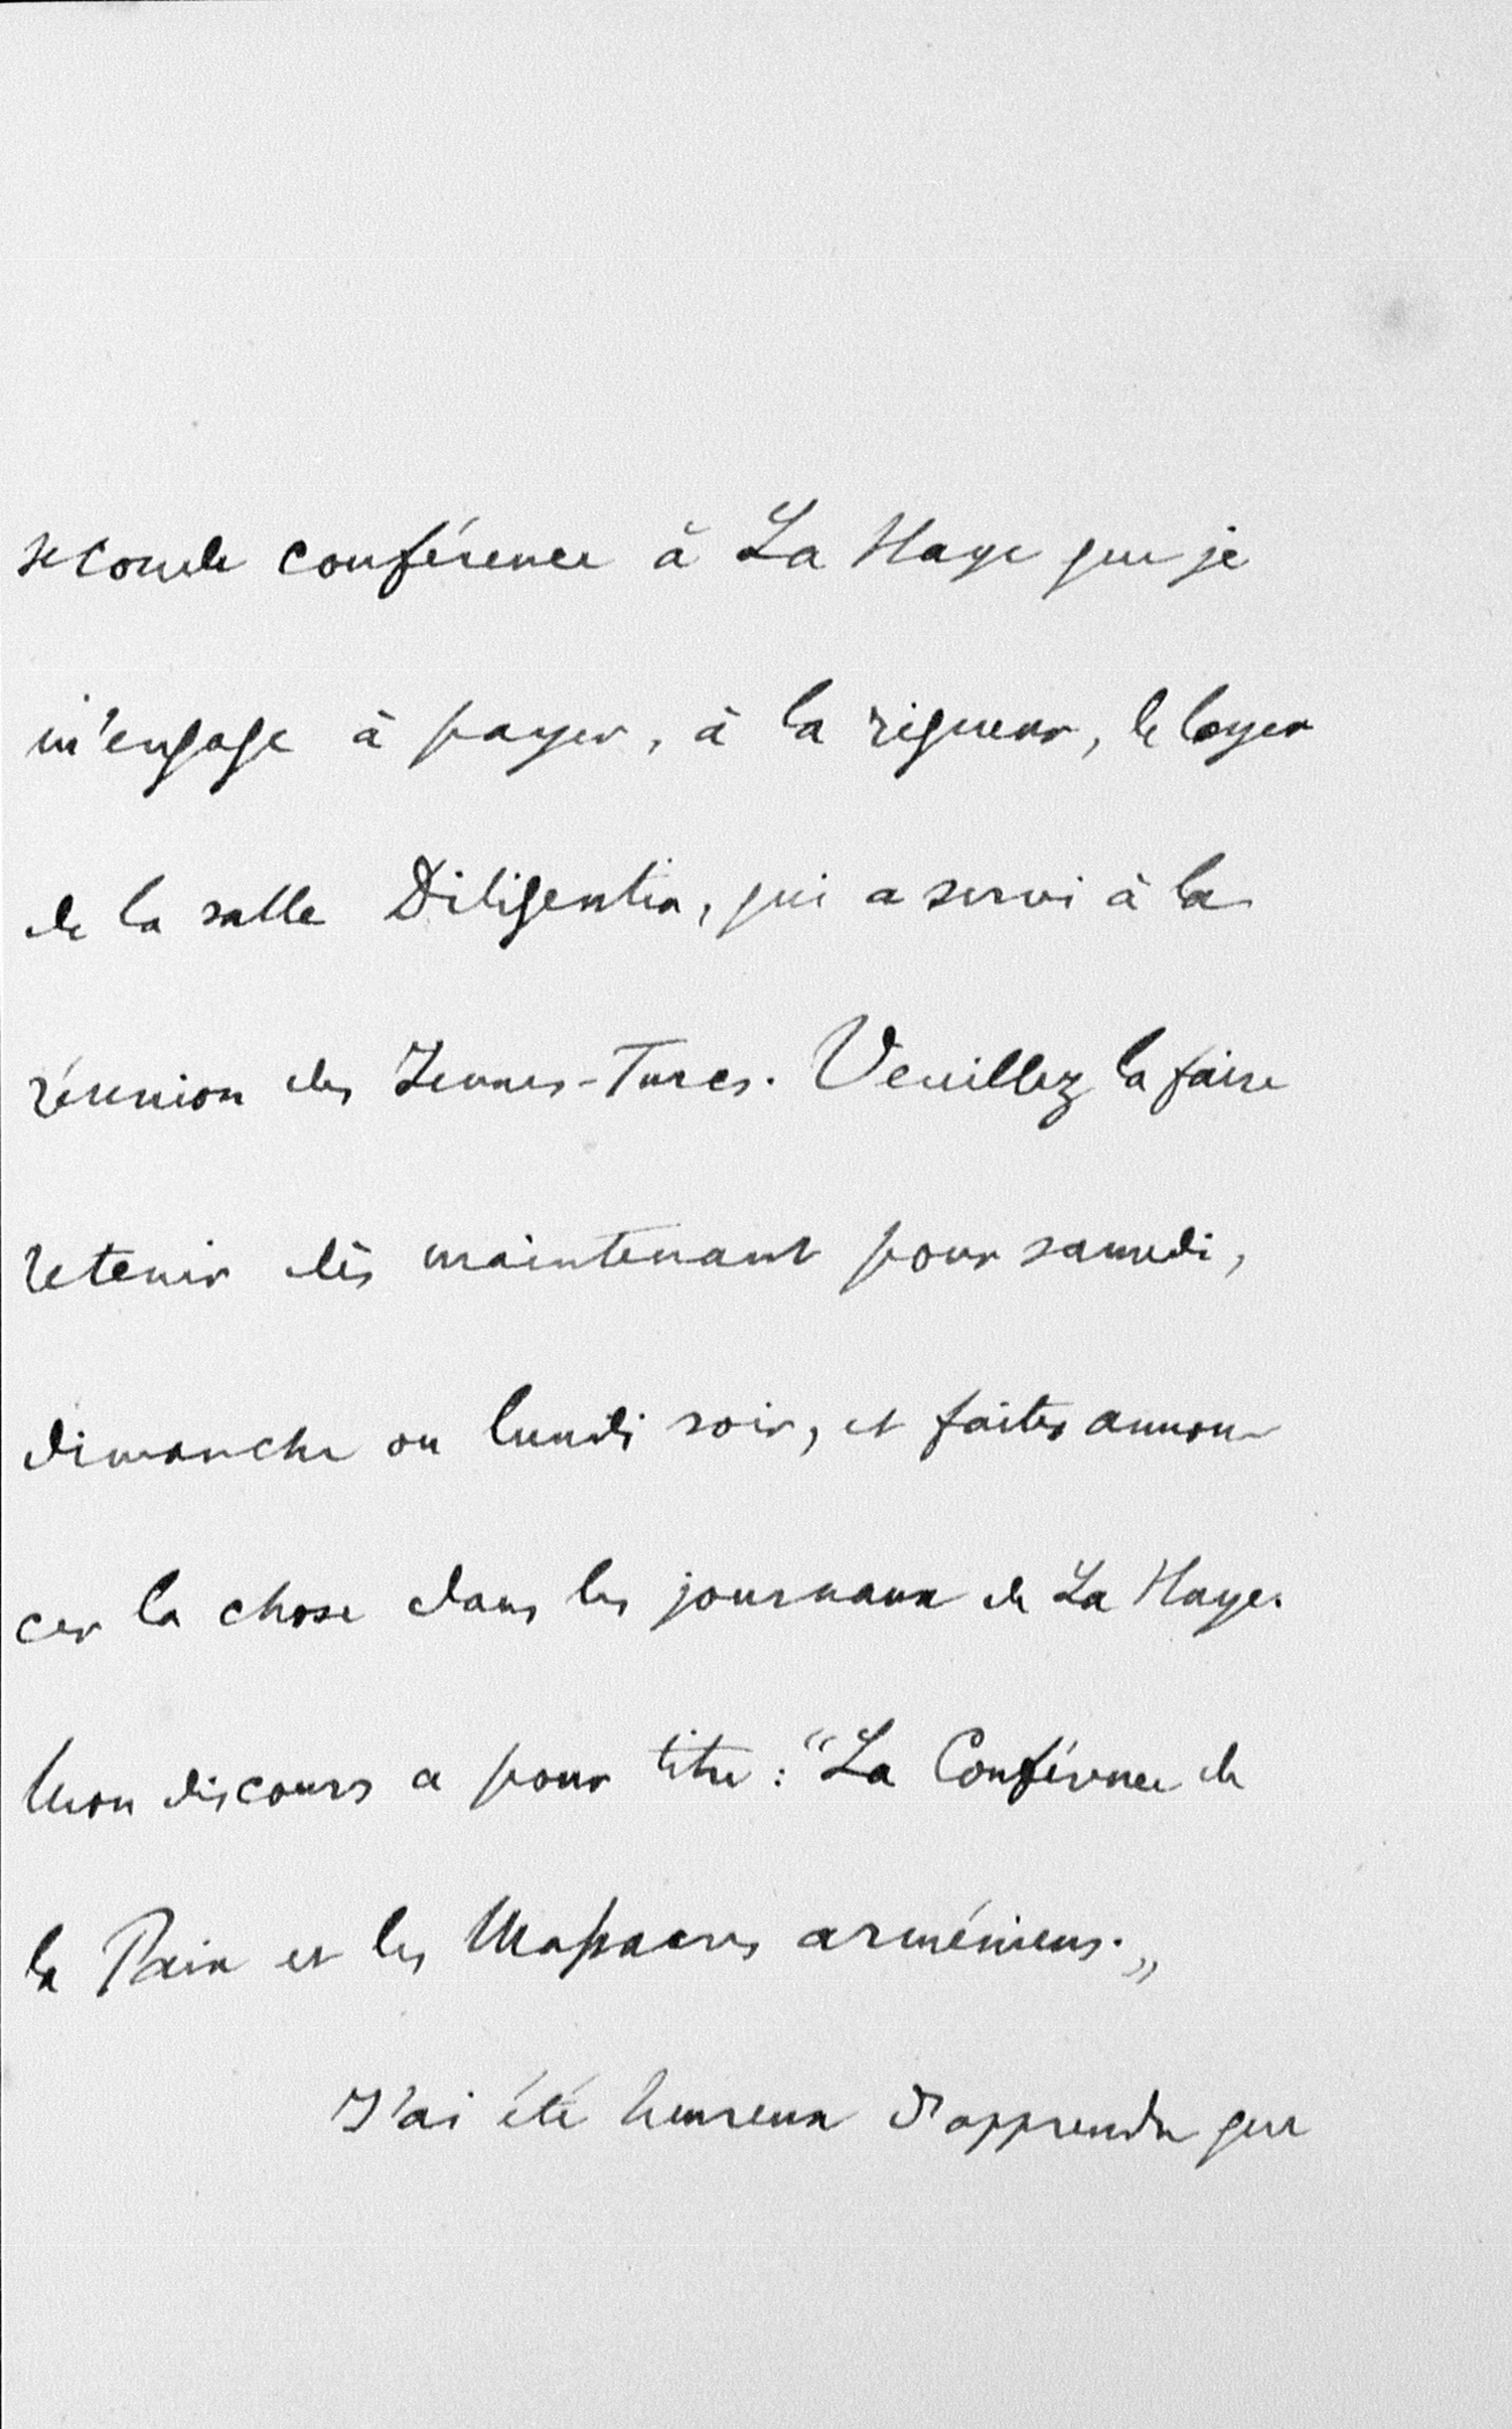 seconde conférence à La Haye que je
m'engage à payer, à la rigueur, le loyer
de la salle Diligentia, qui a servi à la
réunion des Jeunes-Turcs. Veuillez la faire
retenir dès maintenant pour samedi,
dimanche ou lundi soir, et faites annon-
cer la chose dans les journaux de La Haye.
Mon discours a pour titre : "La Conférence de
la Paix et les Massacres arméniens.„
J'ai été heureux d'apprendre que